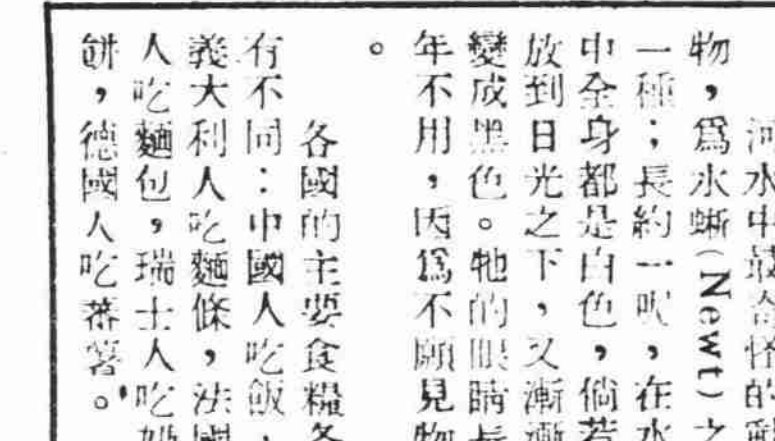 河水中最奇怪的動
物，爲水蜥(Newt)之
一種；長約一呎，在水
中全身都是白色，倘若
放到日光之下，又漸漸
變成黑色。牠的眼睛長
年不用，因爲不願見物
。
各國的主要食糧各
有不同：中國人吃飯，
義大利人吃麵條，法國
人吃麵包，瑞士人吃奶
餅，德國人吃蕃薯。